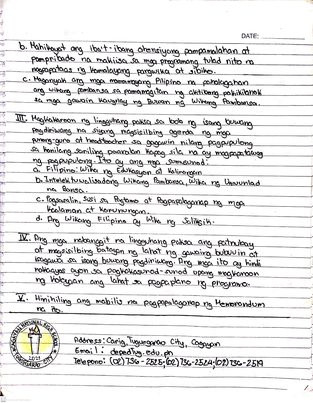 DATE:
b. Mahikayat ang iba't-ibang ahensiyang pampamahalaan at
pampribado na makiisa sa mga programang tulad nito na
nagpapataas ng kamalayang pangwika at sibiko.
c. Maganyak ang mga mamamayang Pilipino na pahalagahan
ang wikang pambansa sa pamamagitan ng aktibong pakikibahok
sa mga gawain kaugnay ng Buwan ng Wikang Pambansa.
III. Magkakaroon ng lingguhang paksa sa loob ng isang buwang
pagdiriwang na siyang magsisilbing agenda ng mga
punong-guro at headteacher sa gagawin nilang pagpupulong
sa kanilang saniling paaralan kapag sila na ay magpapatawag
ng pagpupulong. Ito ay ang mga sumusunod:
a. Filipino: Wika ng Edukasyon at Kalinangan
b. Intelektuwalisadong Wikang Pambansa, Wika ng Umuunlad
na Bansa.
c. Pagsasalin, Susi sa Pagtamo at Pagpapalaganap ng mga
kaalaman at karunungan.
d. Ang Wikang Filipino ay Wika ng Saliksik.
IV. Ang mga nabanggit na lingguhang paksa ang patnubay
at magsisilbing batayan ng lahat ng gawaing bubuuin at
isagawa sa isang buwang pagdiriwang. Ang mga ito ay hindi
nakaayos ayon sa pagkakasunod-sunod upang magkaroon
ng kalayaan ang lahat sa pagpaplano ng programa.
V. Hinihiling ang mabilis na pagpapalaganap ng Memorandum
na ito.
2021
TUGUEGARAO CITY
Address: Carig, Tuguegarao City, Cagayan
Email: deped@g.edu.ph
Telepono: (02) 736-2525; (02) 736-2524; (02) 736-2519